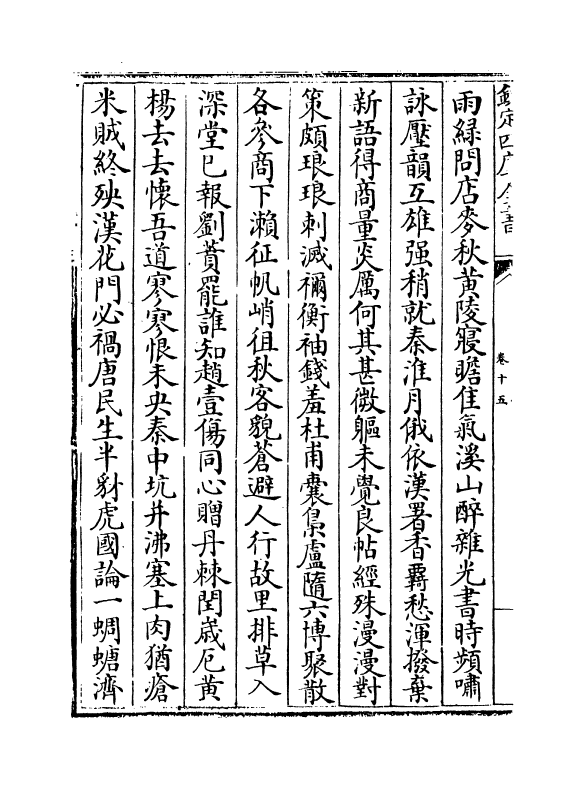 欽定四庫全書
卷十五
雨綠問店麥秋黄陵寢瞻佳氣溪山醉雜光書時頻嘯
詠壓韻互雄强稍就秦淮月俄依漢署香羇愁渾撥棄
新語得商量炎厲何其甚微軀未覺良帖經殊漫漫對
策頗琅琅刺滅禰衡袖錢羞杜甫囊梟盧隨六博聚散
各參商下瀨征帆峭徂秋客貌蒼避人行故里排草入
深堂已報劉蕡罷誰知趙壹傷同心贈丹棘閏歲厄黄
楊去去懷吾道寥寥恨未央秦中坑井沸塞上肉猶瘡
米賊終殃漢花門必禍唐民生半豺虎國論一蜩螗濟